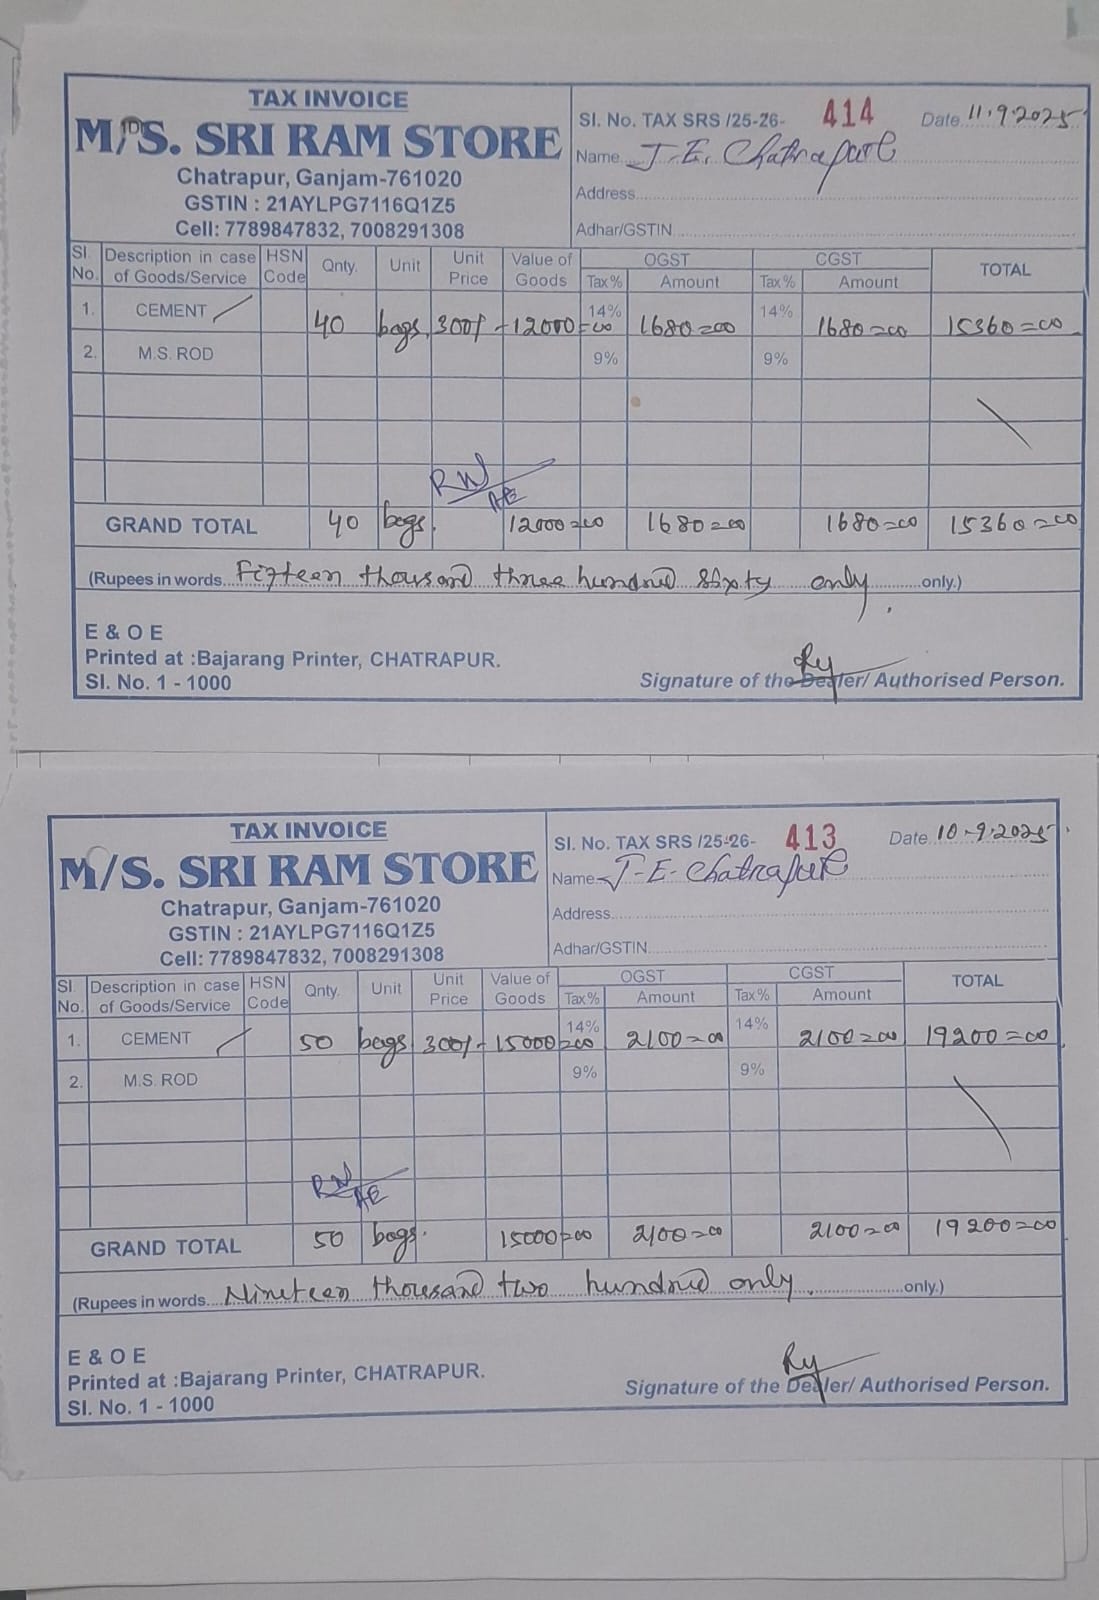 TAX INVOICE
M/S. SRI RAM STORE
Chatrapur, Ganjam-761020
GSTIN : 21AYLPG7116Q1Z5
Cell: 7789847832, 7008291308
Sl. No. TAX SRS /25-26- 414 Date 11.9.2025
Name J.E. Chatrapur
Address
Adhar/GSTIN
Sl. No. Description in case of Goods/Service HSN Code Qnty. Unit Unit Price Value of Goods OGST Tax% Amount CGST Tax% Amount TOTAL
1. CEMENT 40 bags 300/- 12000=00 14% 1680=00 14% 1680=00 15360=00
2. M.S. ROD 9% 9%
GRAND TOTAL 40 bags. 12000=00 1680=00 1680=00 15360=00
(Rupees in words Fifteen thousand three hundred sixty only only.)
E & O E
Printed at :Bajarang Printer, CHATRAPUR.
Sl. No. 1 - 1000
Signature of the Dealer/ Authorised Person.
TAX INVOICE
M/S. SRI RAM STORE
Chatrapur, Ganjam-761020
GSTIN : 21AYLPG7116Q1Z5
Cell: 7789847832, 7008291308
Sl. No. TAX SRS /25-26- 413 Date 10-9-2025
Name J-E- Chatrapur
Address
Adhar/GSTIN
Sl. No. Description in case of Goods/Service HSN Code Qnty. Unit Unit Price Value of Goods OGST Tax% Amount CGST Tax% Amount TOTAL
1. CEMENT 50 bags 300/- 15000=00 14% 2100=00 14% 2100=00 19200=00
2. M.S. ROD 9% 9%
GRAND TOTAL 50 bags. 15000=00 2100=00 2100=00 19200=00
(Rupees in words Nineteen thousand two hundred only. only.)
E & O E
Printed at :Bajarang Printer, CHATRAPUR.
Sl. No. 1 - 1000
Signature of the Dealer/ Authorised Person.